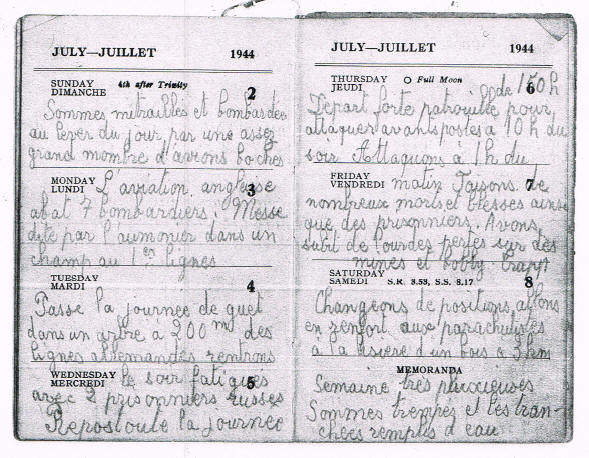 JULY—JUILLET 1944
SUNDAY 4th after Trinity
DIMANCHE 2
Sommes mitraillés et bombardés
au lever du jour par une assez
grand nombre d'avions boches
MONDAY 3
LUNDI L'aviation anglaise
abat 7 bombardiers. Messe
dite par l'aumonier dans un
champ au 1er lignes
TUESDAY 4
MARDI
Passe la journée de guet
dans un arbre a 200 m des
lignes allemandes rentrons
WEDNESDAY le soir fatigués 5
MERCREDI
avec 2 prisonniers russes
Repos toute la journée
JULY—JUILLET 1944
THURSDAY O Full Moon 6
JEUDI de 150 h
Départ forte patrouille pour
attaquer avant postes a 10 h du
soir Attaquons à 1 h du
FRIDAY 7
VENDREDI matin Faisons de
nombreux morts et blesses ainsi
que des prisonniers. Avons
subit de lourdes pertes sur des
mines et bobby traps
SATURDAY 8
SAMEDI S.R. 3.53, S.S. 8.17
Changeons de positions, allons
en renfort aux parachutistes
à la lisière d'un bois a 3 km
MEMORANDA
Semaine très pluvieuses
Sommes trempés et les tran-
chées remplis d'eau